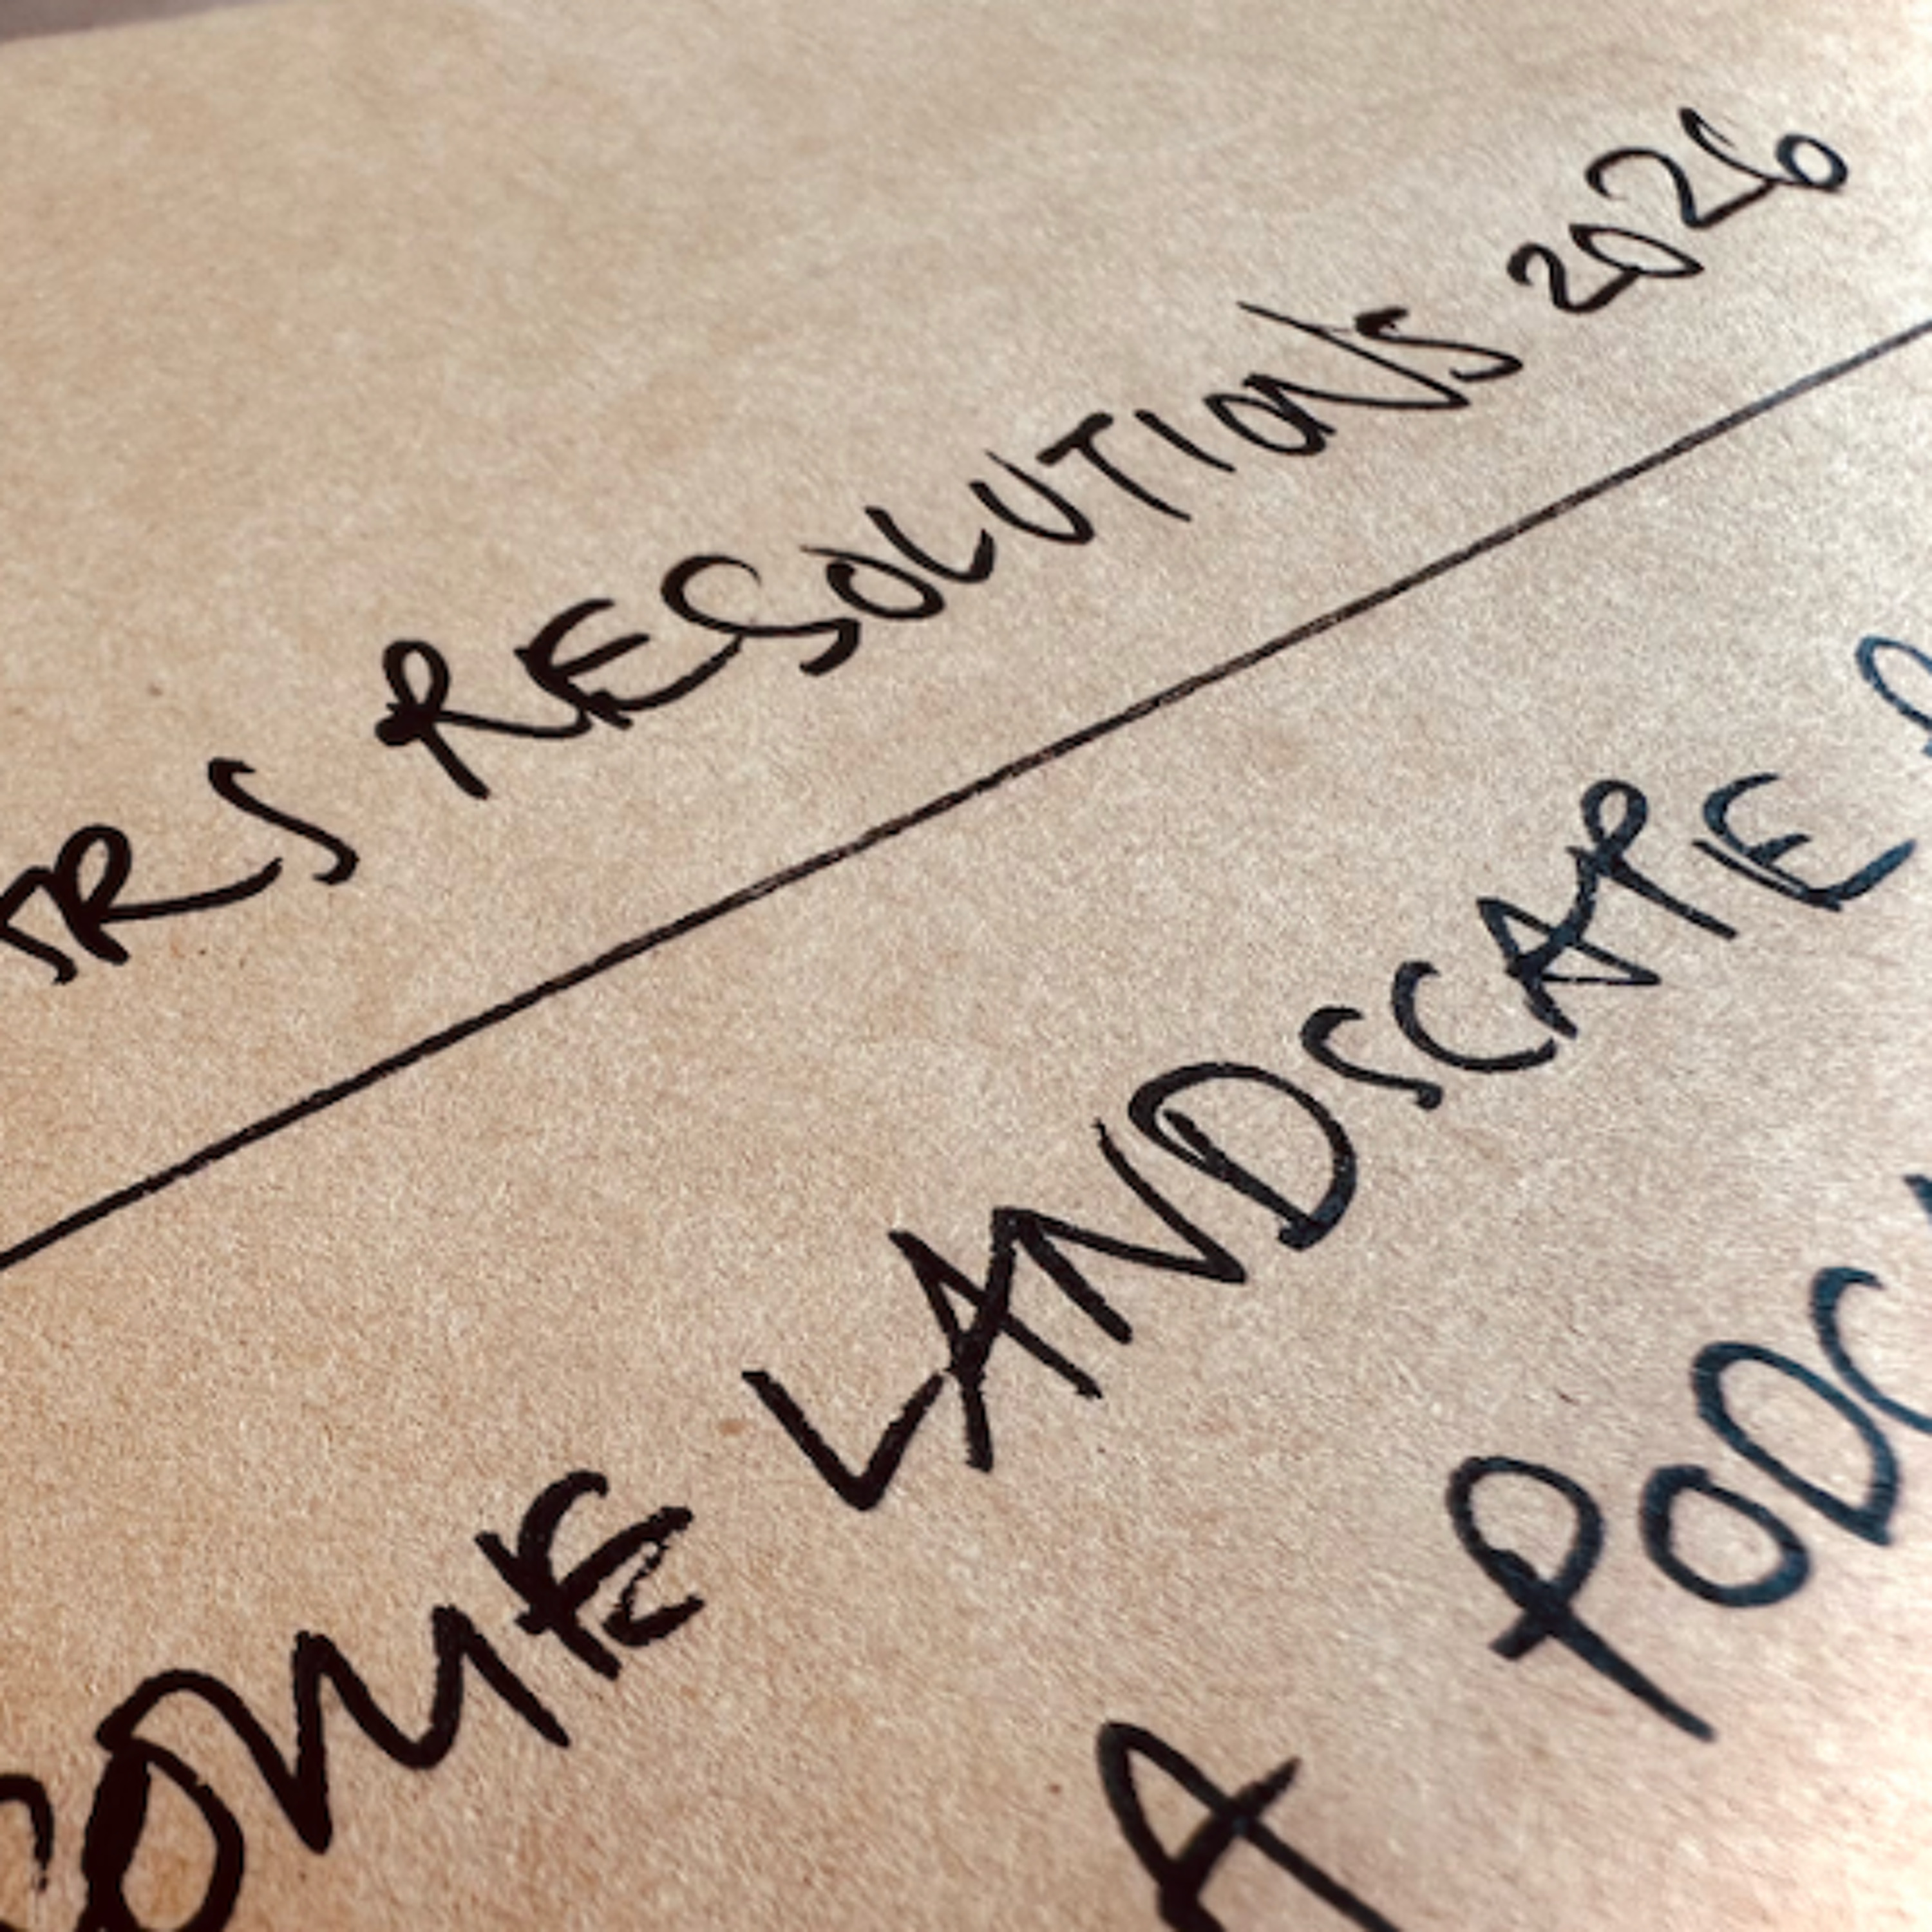 RS RESOLUTIONS 2026
COME LANDSCAPE
A PODC